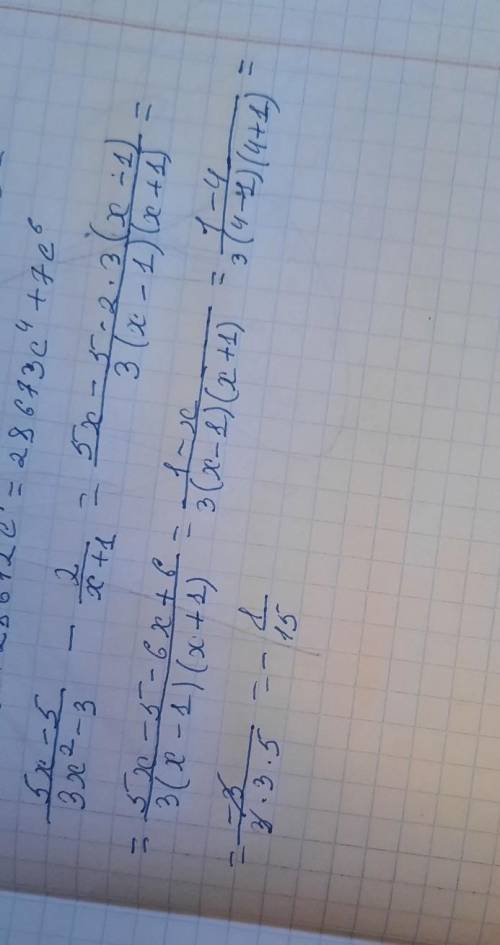 = 28673c⁴ + 7c⁶
(5x - 5)/(3x² - 3) - 2/(x + 1) = (5x - 5 - 2 · 3(x - 1))/(3(x - 1)(x + 1)) =
= (5x - 5 - 6x + 6)/(3(x - 1)(x + 1)) = (1 - x)/(3(x - 1)(x + 1)) = (1 - 4)/(3(4 - 1)(4 + 1)) =
= (-3)/(3 · 3 · 5) = - 1/15